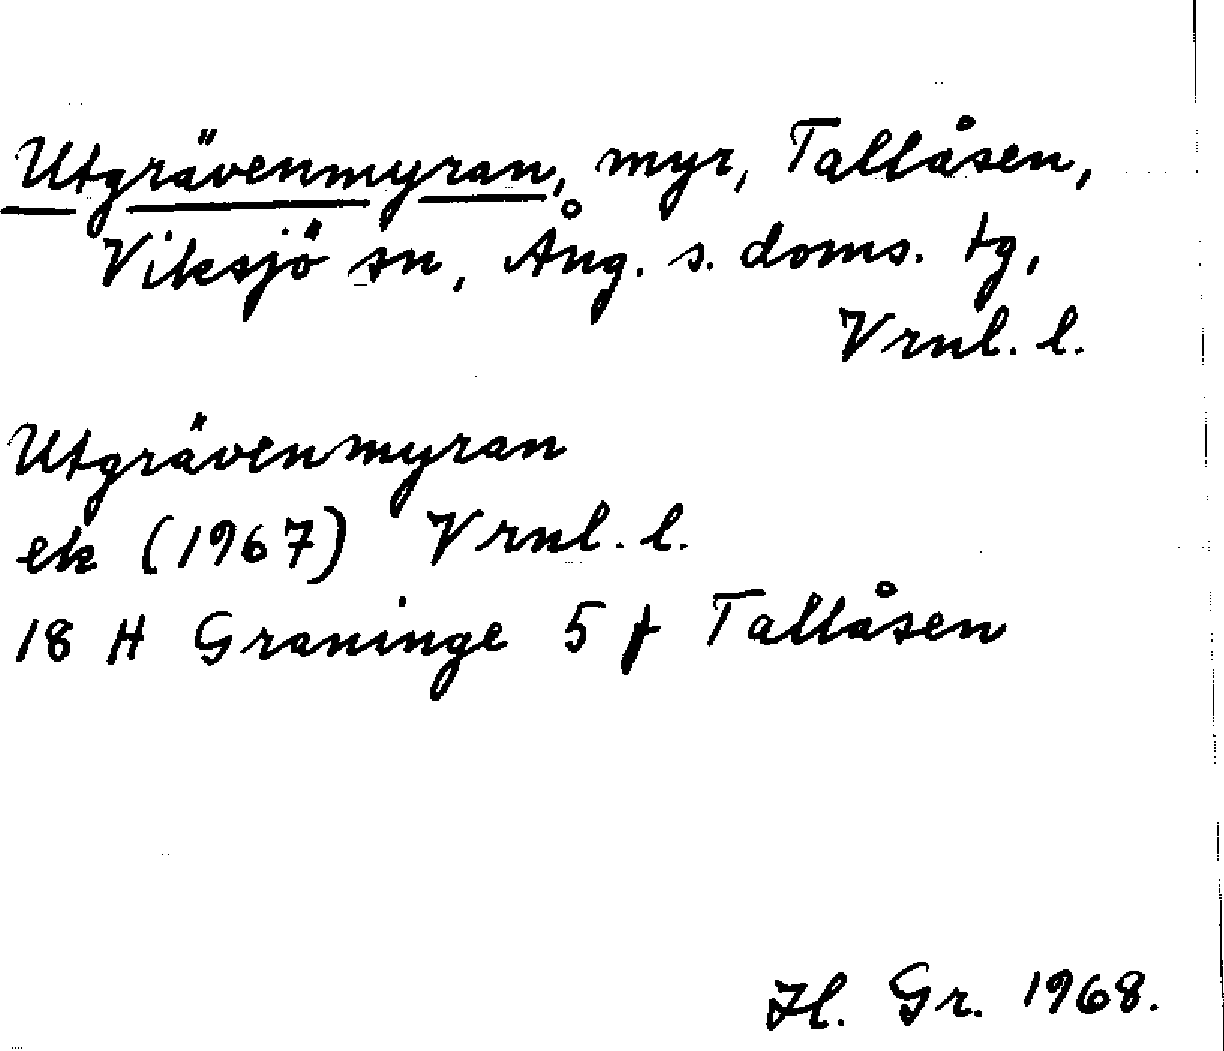 Utgrävenmyran, myr, Tallåsen,
Viksjö sn, Ång. s. doms. tg,
Vrnl. l.
Utgrävenmyran
ek (1967) Vrnl. l.
18 H Graninge 5 f Tallåsen
Hl. Gr. 1968.